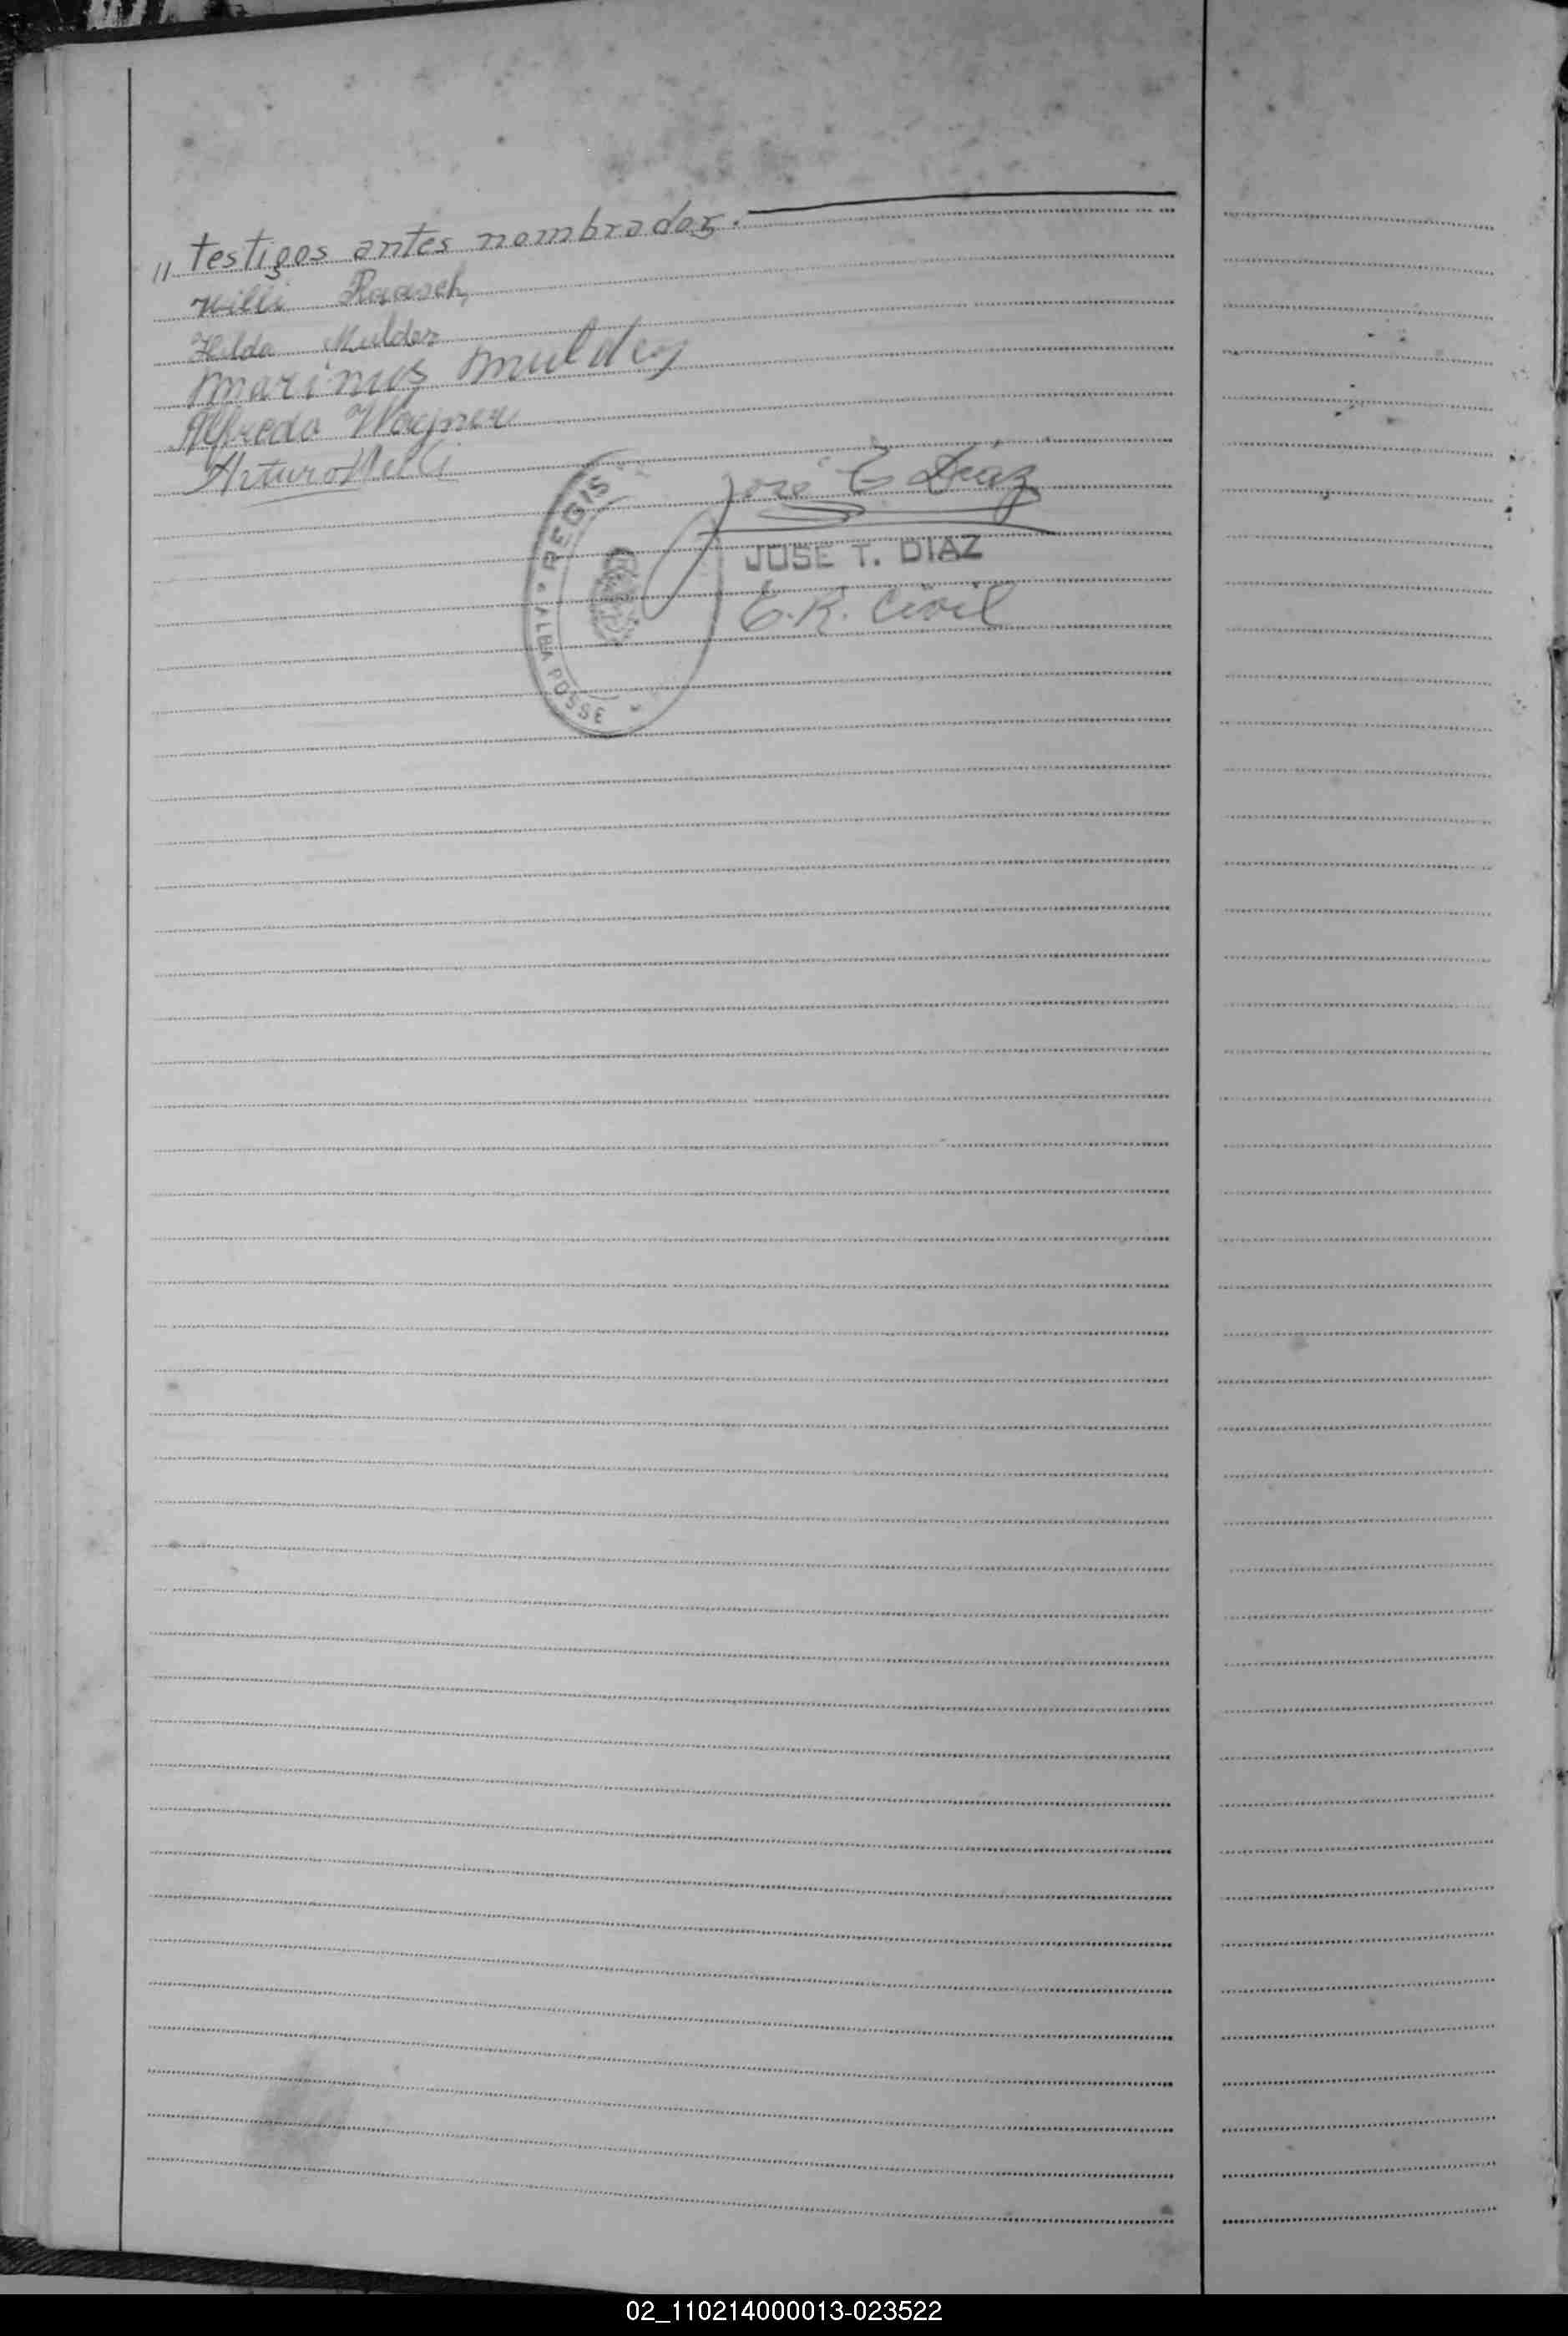 " testigos antes nombrados.
Willi Raasch
Hilda Mulder
marinus mulder
Alfredo Wagner
Arturo
José T Díaz
REGIS
ALBA POSSE
JOSE T. DIAZ
E.R. Civil
02_110214000013-023522